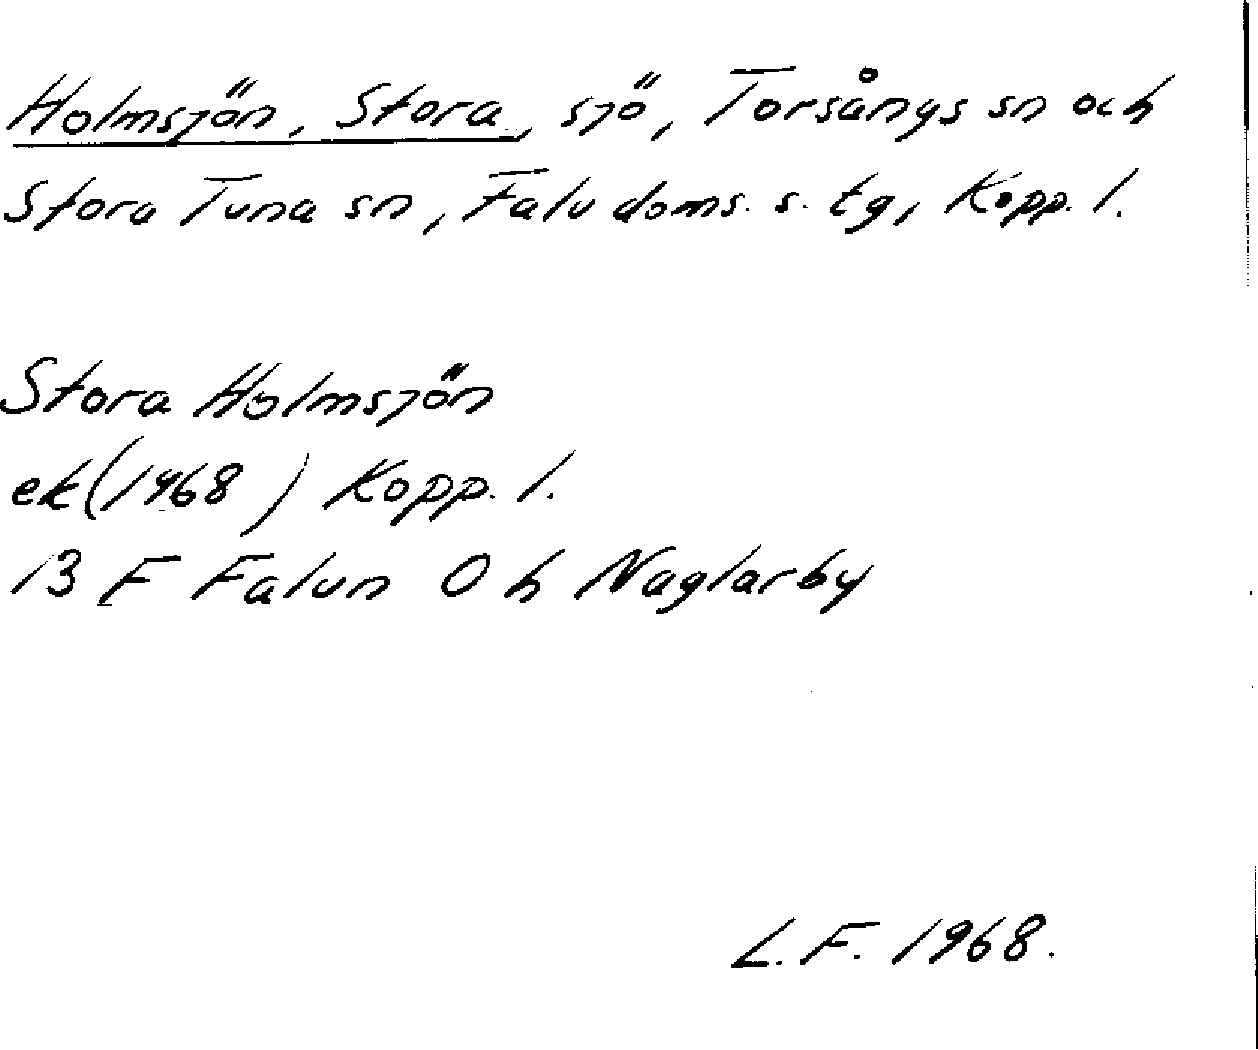 Holmsjön, Stora, sjö, Torsångs sn och
Stora Tuna sn, Falu doms. s. tg, Kopp. l.
Stora Holmsjön
ek (1968) Kopp. l.
13 F Falun 0 h Naglarby
L. F. 1968.